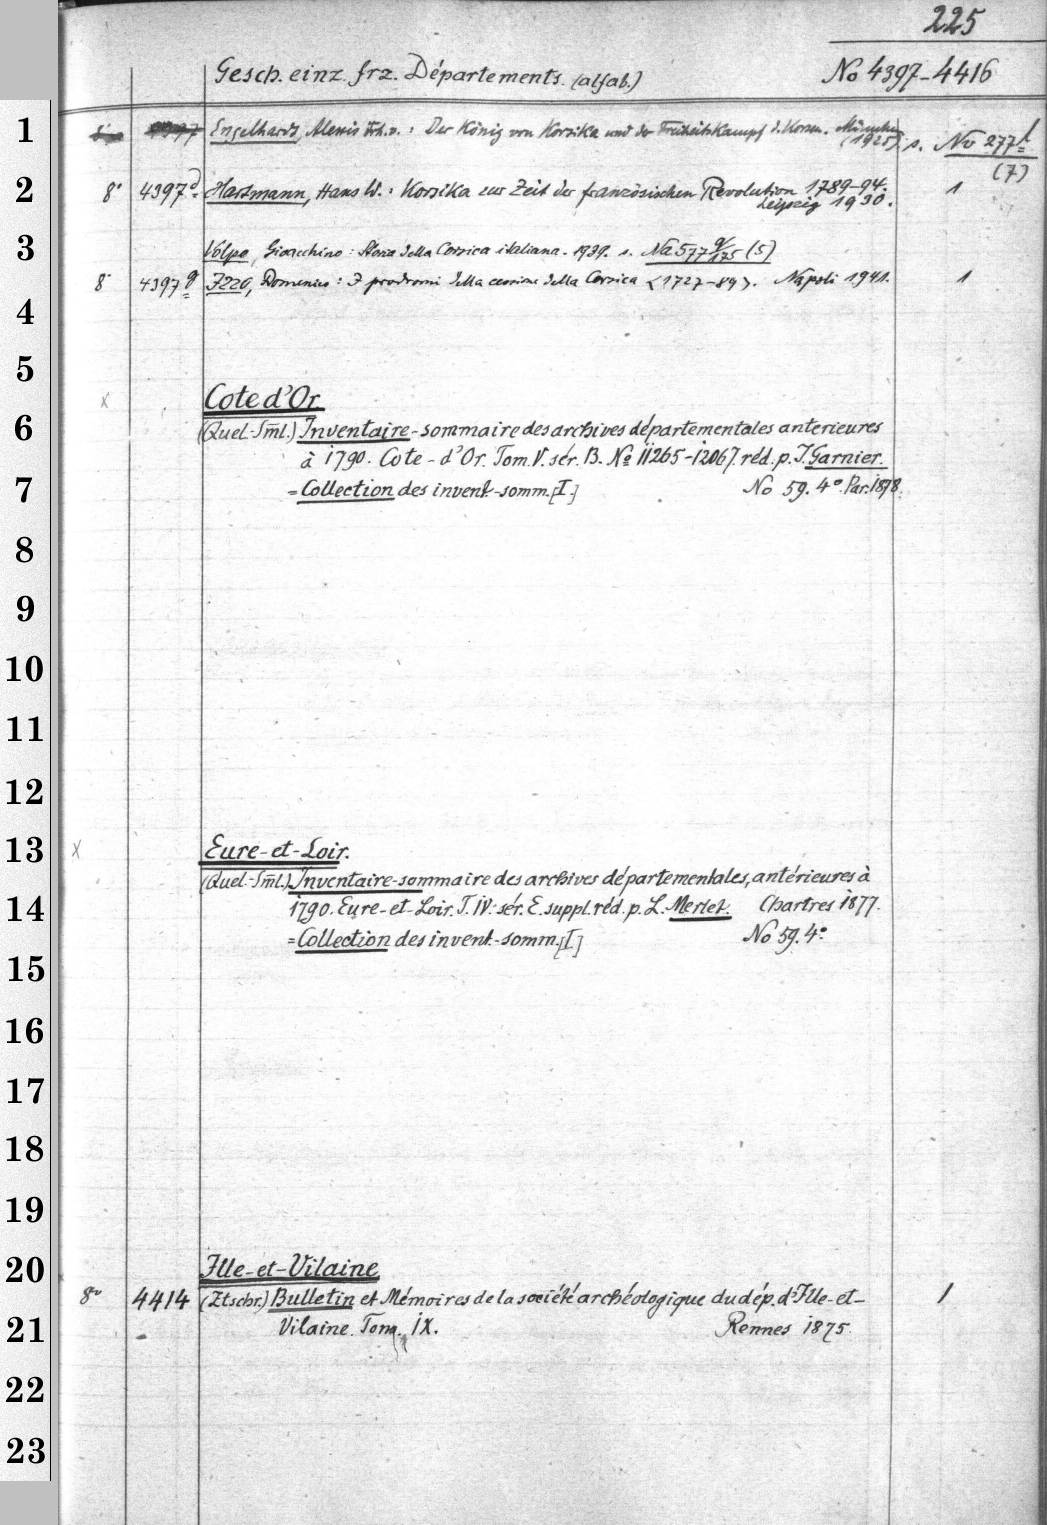 225
Gesch. einz. frz. Départements. (alfab.) No 4397-4416
1
Engelhardt, Alexis Frh. v. : Der König von Korsika und der Freiheitskampf d. Korsen. München
(1925). s. No 277
(7)
2
8° 4397 Hartmann, Hans W. : Korsika zur Zeit der französischen Revolution 1789-94. 1
Leipzig 1930.
3
Volpe, Gioacchino : Storia della Corsica italiana. 1939. s. Na 577 9/175 (5)
8° 4397 g Izzo, Domenico : I prodromi della cessione della Corsica <1727-89>. Napoli 1941. 1
4
5
x Cote d'Or
6
(Quel.-Sml.) Inventaire-sommaire des archives départementales anterieures
à 1790. Cote-d'Or. Tom. V. sér. B. No 11265-12067. réd. p. J. Garnier.
7
=Collection des invent.-somm. [I.] No 59. 4° Par. 1878.
8
9
10
11
12
13
x Eure-et-Loir.
(Quel.-Sml.) Inventaire-sommaire des archives départementales, antérieures à
14
1790. Eure-et-Loir. T. IV. sér. E. suppl. réd. p. L. Merlet. Chartres 1877.
=Collection des invent.-somm. [I] No 59. 4°
15
16
17
18
19
20
Ille-et-Vilaine
8° 4414 (Ztschr.) Bulletin et Mémoires de la société archéologique du dép. d'Ille-et- 1
21
Vilaine. Tom. IX. Rennes 1875.
22
23